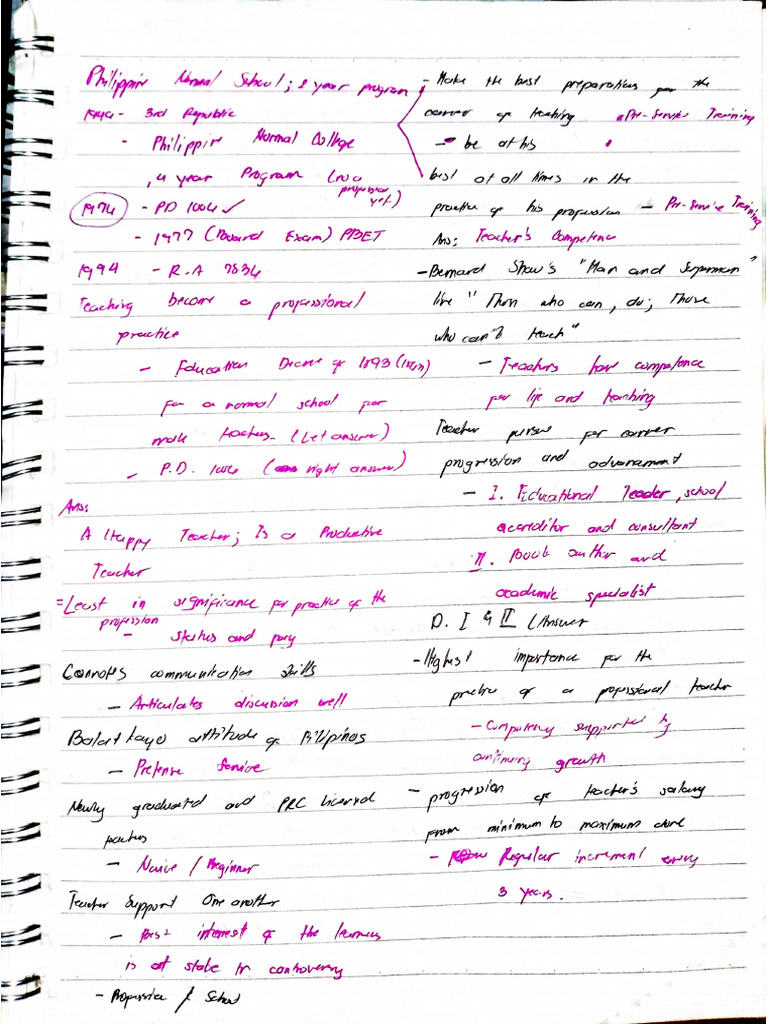 Philippin Normal School; 2 year program
1949 - 3rd Republic
- Philippin Normal College
, 4 year Program (no
professional
yet)
1976 - PD 1006 ✓
- 1977 (Board Exam) PBET
1994 - R.A 7836
Teaching become a professional
practice
- Education Decree of 1893
for a normal school for
male teachers. (Let answer)
- P.D. 1006 ( right answer)
Ans:
A Happy Teacher; Is a Productive
Teacher
= Least in significance for practice of the
profession
- status and pay
Connotes communication skills
- Articulates discussion well
Balat kayo attitude of Pilipinos
- Pretense Service
Newly graduated and PRC licensed
teachers
- Novice / Beginner
Teacher Support One another
- Best interest of the learners
is at stake in controversy
- / School
- Make the best preparations for the
career of teaching - Pre-Service Training
- be at his
best at all times in the
practice of his profession - Pre-Service Training
Ans: Teacher's Competence
- Bernard Shaw's "Man and Superman"
line "Those who can, do; Those
who can't teach"
- Teachers have competence
for life and teaching
Teacher pursue for career
progression and advancement
- I. Educational Leader, school
accreditor and consultant
II. Book author and
academic specialist
D. I & II (Answer
- Highest importance for the
practice of a professional teacher
- Competency supported by
continuing growth
- progression of teacher's salary
from minimum to maximum done
- Regular increment every
3 years.